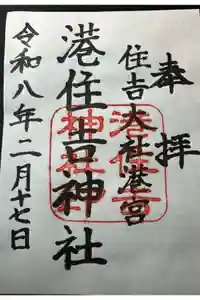 奉拝
住吉大社港宮
港住吉神社
令和八年二月十七日
港住吉
神社